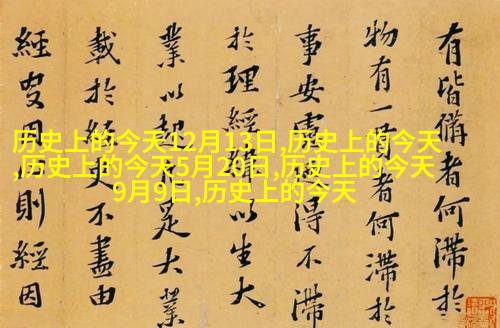 历史上的今天12月13日,历史上的今天
,历史上的今天5月20日,历史上的今天
9月9日,历史上的今天
有皆備者何滯於
物有一者何滯於
事安得不滯
於理經以生大
業以是大業
載於史不盡由
經因則經因